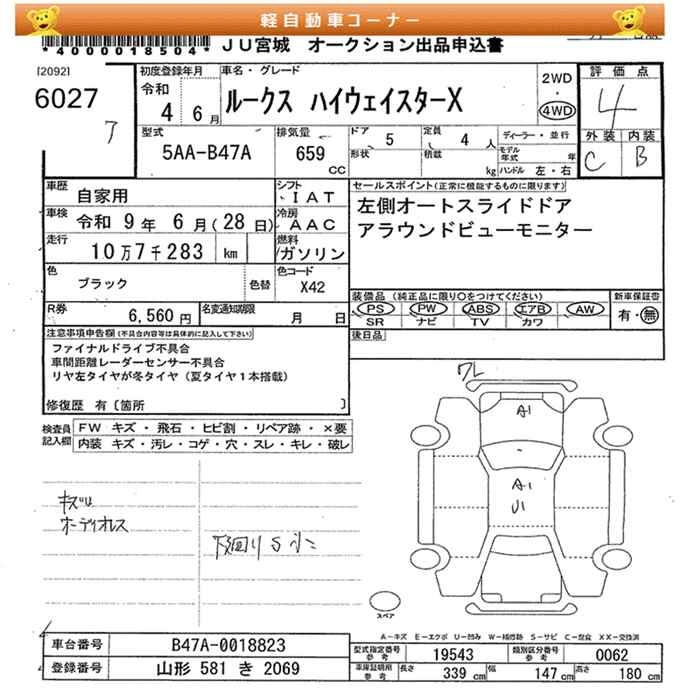 軽自動車コーナー
*40000018504* JU宮城 オークション出品申込書
[2092]
6027
ア
初度登録年月
令和 4年 6月
車名・グレード
ルークス ハイウェイスターX
2WD
・
4WD
評価点
4
外装 内装
C B
型式
5AA-B47A
排気量
659 CC
ドア 5
形状
定員 4人
積載 kg
ディーラー・並行
モデル年式 年
ハンドル 左・右
車歴
自家用
シフト
IAT
車検
令和 9年 6月(28日)
冷房
AAC
走行
10万7千283 km
燃料
ガソリン
色
ブラック
色替
色コード
X42
セールスポイント(正常に機能するものに限ります)
左側オートスライドドア
アラウンドビューモニター
R券
6,560円
名変通知期限
月 日
装備品(純正品に限り○をつけてください)
PS PW ABS エアB AW
SR ナビ TV カワ
新車保証書
有・無
後日品
注意事項申告欄(不具合内容等は具体的に記入して下さい)
ファイナルドライブ不具合
車間距離レーダーセンサー不具合
リヤ左タイヤが冬タイヤ(夏タイヤ1本搭載)
修復歴 有〔箇所 〕
検査員記入欄
FW キズ・飛石・ヒビ割・リペア跡・×要
内装 キズ・汚レ・コゲ・穴・スレ・キレ・破レ
キズU
オーディオレス
下回りS小
ワレ
A1
A1
U1
スペア
A-キズ E-エクボ U-凹み W-補修跡 S-サビ C-腐食 XX-交換済
車台番号
B47A-0018823
登録番号
山形 581 き 2069
型式指定番号 参考
19543
類別区分番号 参考
0062
車庫証明用 参考
長さ 339 cm
幅 147 cm
高さ 180 cm